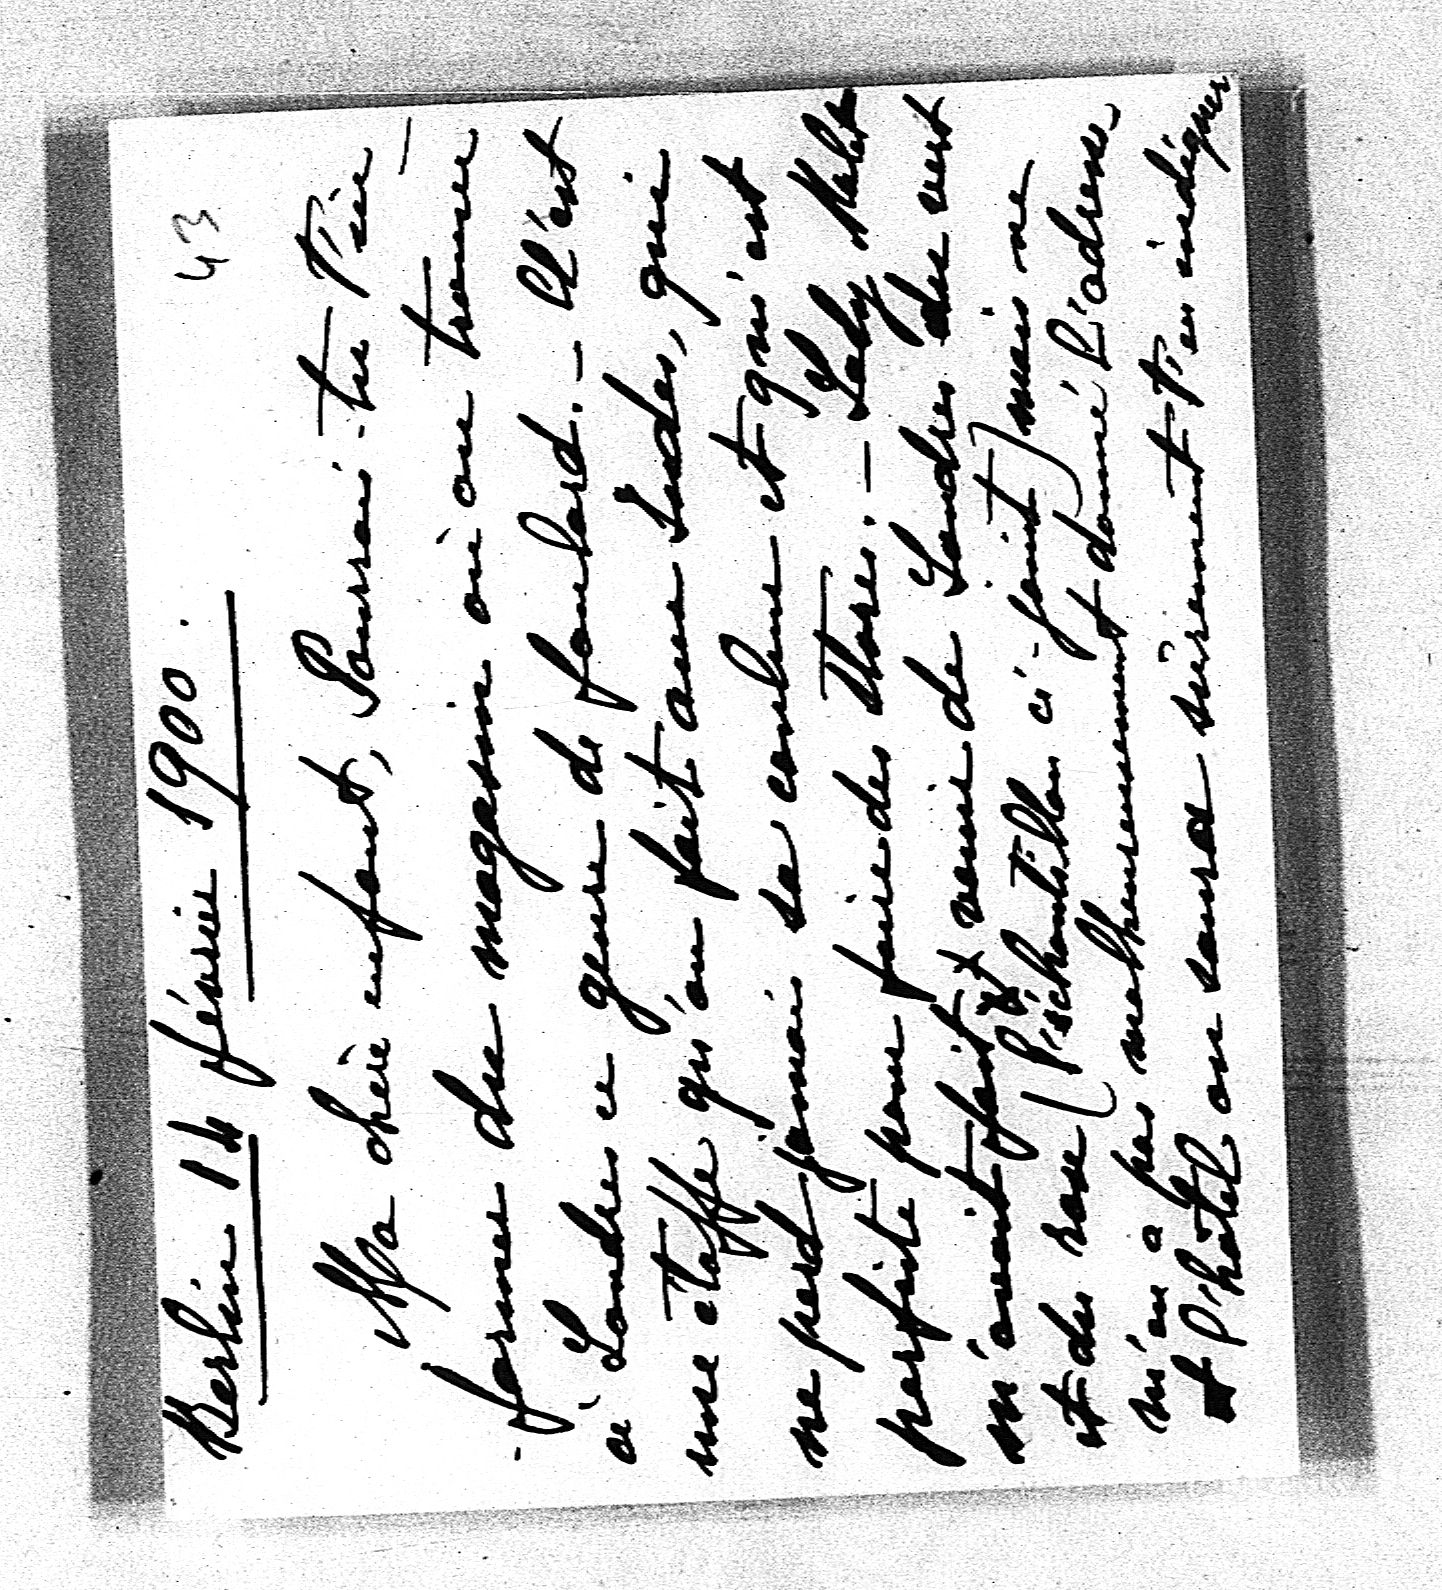 43
Berlin 14 février 1900.
Ma chère enfant, Pourrais-tu t'in-
-former du magasin où on trouve
à Londres ce genre de foulard. - C'est
une étoffe qu'on fait aux Indes, qui
ne perd jamais sa couleur et qui est
parfaite pour faire des stores. - Lady Malet
m'avait fait venir de Londres du vert
et du rose (l'échantillon ci-joint) mais ne
m'en a pas malheureusement donné l'adresse
l'hôtel on saura sûrement t'en indiquer